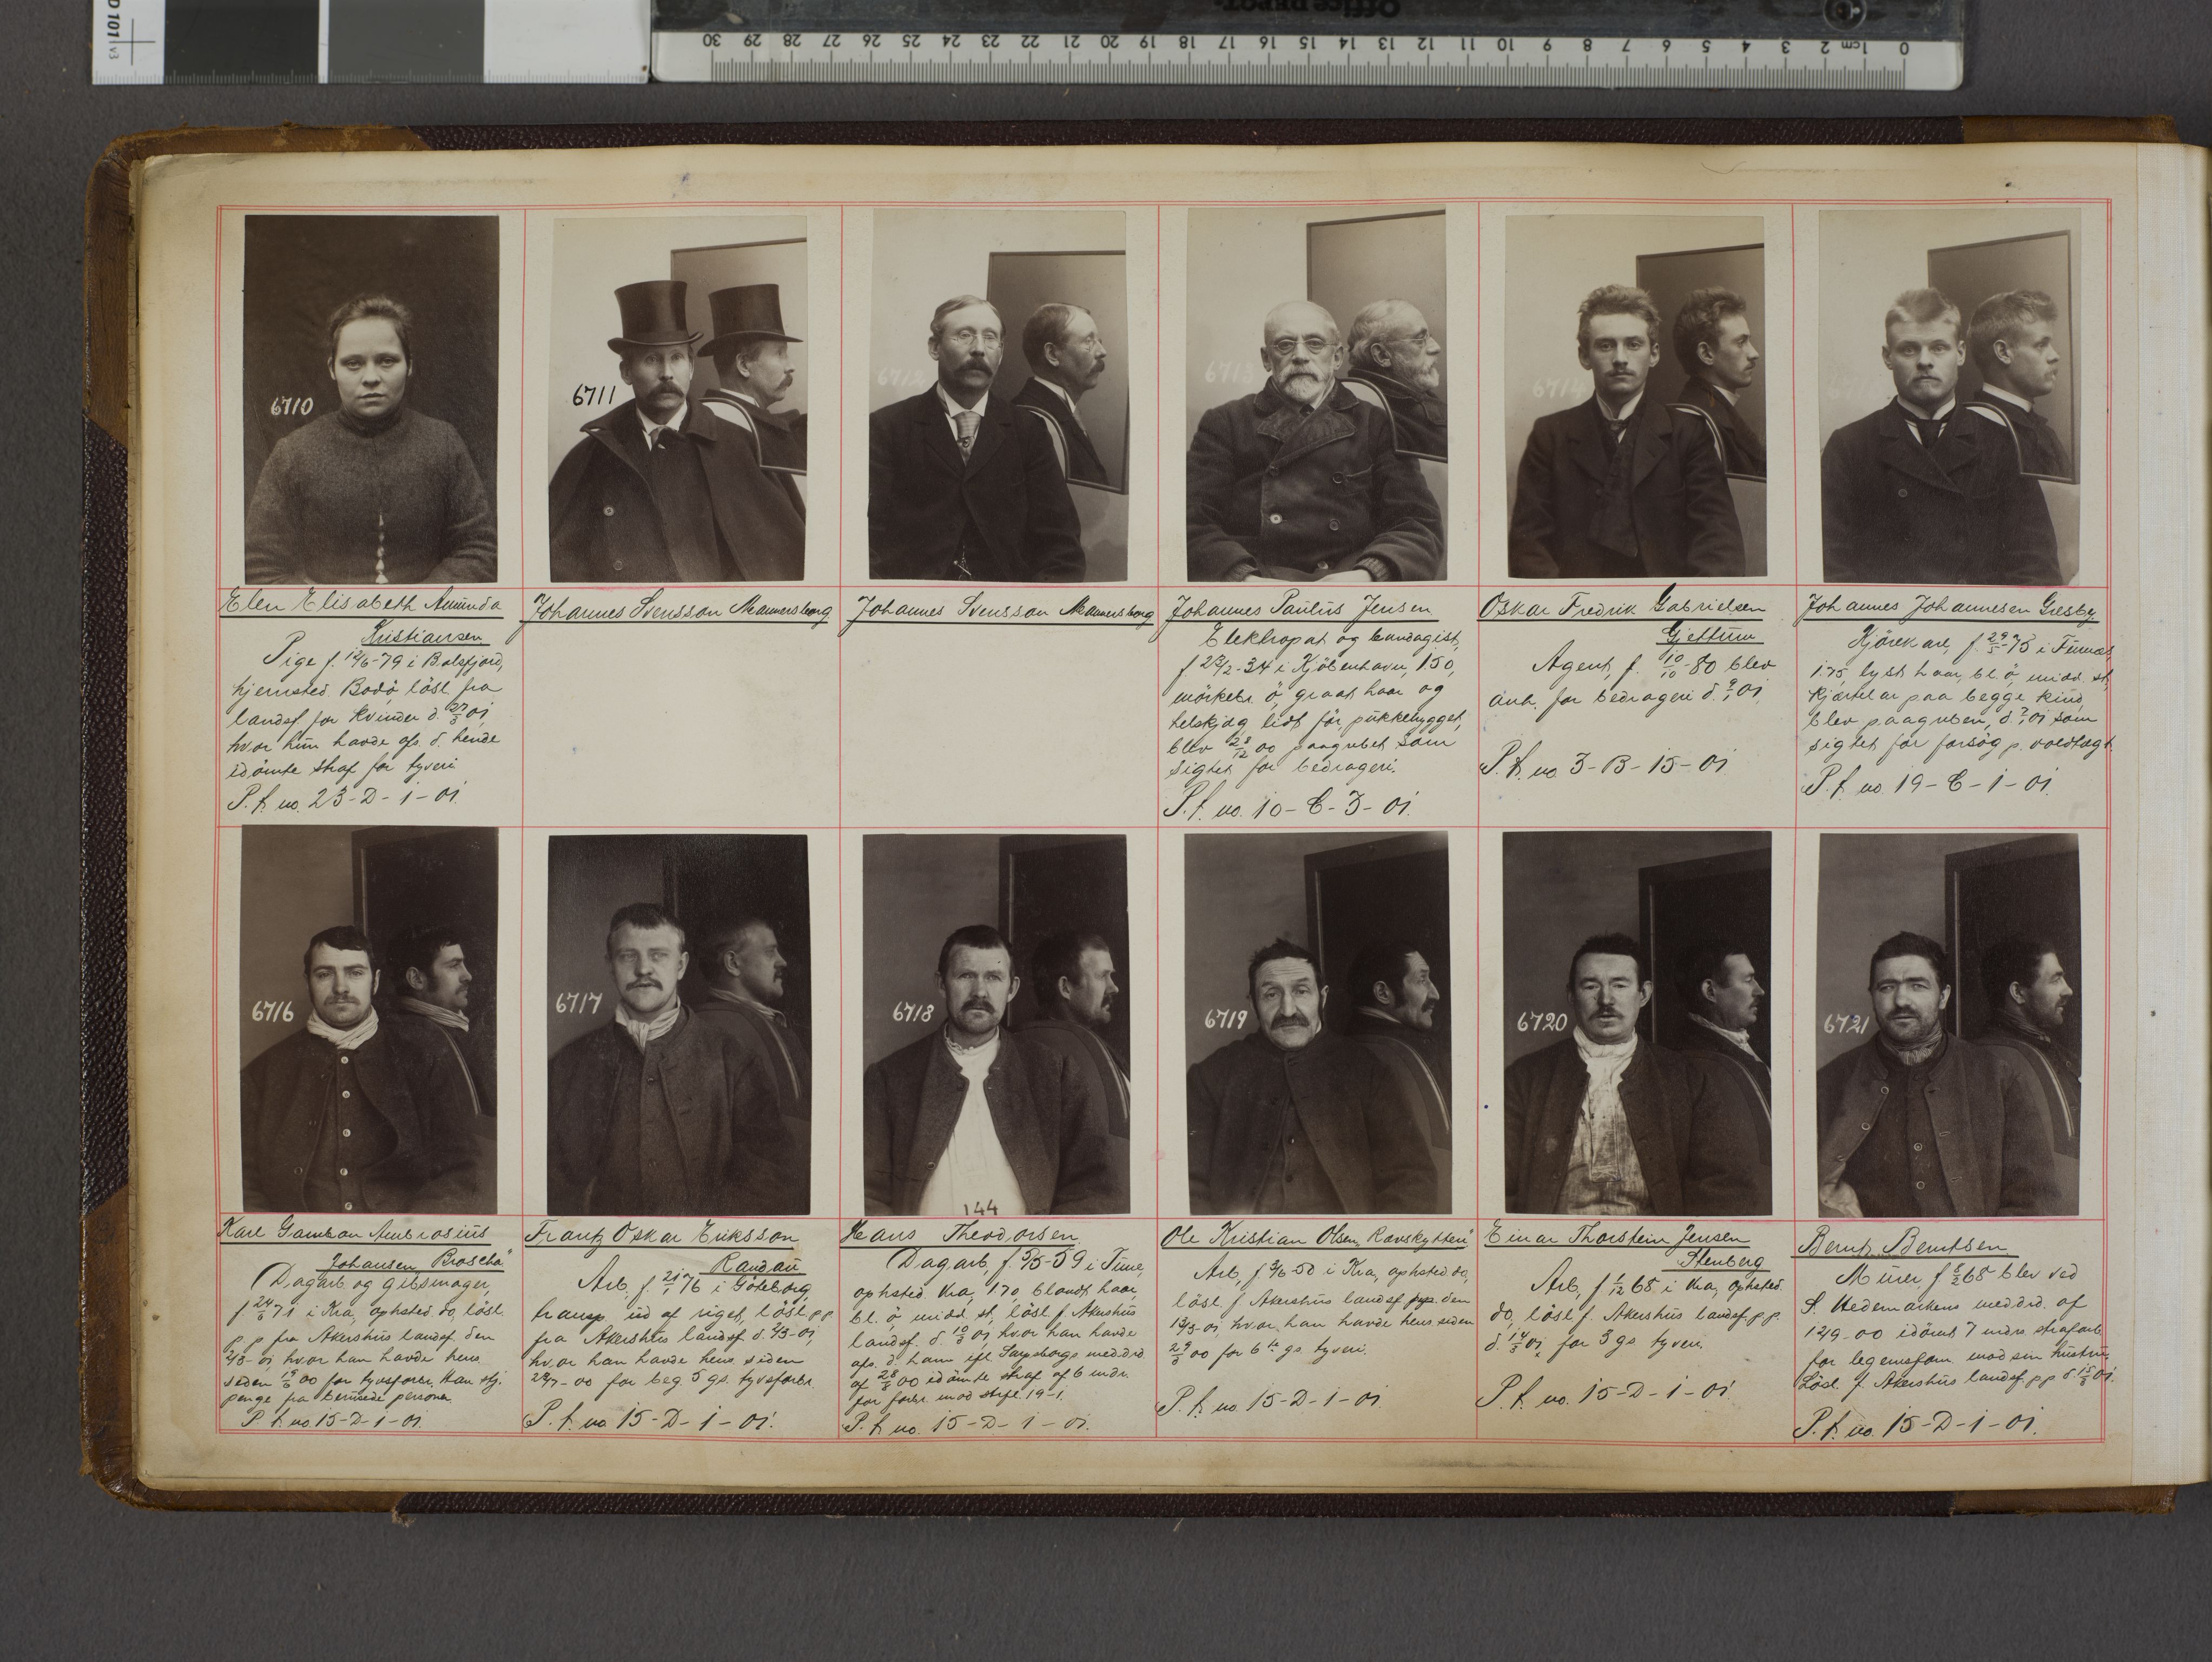 D 101 v3
Office DEPOT
0 1cm 2 3 4 5 6 7 8 9 10 11 12 13 14 15 16 17 18 19 20 21 22 23 24 25 26 27 28 29 30
6710
Elen Elisabeth Amunda
Kristiansen
Pige f. 12/6-79 i Balsfjord,
hjemsted Bodö, lösl. fra
landsf. for kvinder d. 27/3 01,
hvor hun havde afs. d. hende
idömte straf for tyveri
P. f. no. 23-D-1-01.
6711
Johannes Svensson Mannersborg
6712
Johannes Svensson Mannersborg
6713
Johannes Paulus Jensen
Elektropat og bandagist,
f 22/2-34 i Kjöbenhavn, 1.50,
mörkebr. ö, graat haar og
helskjæg lidt för pukkelrygget,
blev 28/12 00 paagrebet som
sigtet for bedrageri.
P. f. no. 10-C-3-01.
6714
Oskar Fredrik Gabrielsen
Gjettum
Agent, f. 10/10-80 blev
anh. for bedrageri d. 9/1 01
P. f. no 3-B-15-01
Johannes Johannesen Gresby
Kjörekarl, f. 29/5-75 i
1.75, lyst haar, bl. ö, midd. st,
Kjærtelar paa begge kind,
blev paagreben, d. 7/1 01 som
sigtet for forsög p. voldtægt
P. f. no. 19-C-1-01.
6716
Karl Gamban Ambrosius
Johansen "Broscha"
Dagarb og gibsmager,
f 24/6 71 i Kra, ophsted do, lösl.
p. p fra Akershus landsf. den
2/3-01, hvor han havde hens.
seden 19/6 00 for tyvsforbr. Han stj.
penge fra berusede personer
P. f. no. 15-D-1-01.
6717
Frantz Oskar Eriksson
Randau
Arb, f. 21/1 76 i Göteborg,
transp ud af riget, lösl. p p
fra Akershus landsf. d. 2/3-01,
hvor han havde hens. siden
28/7-00 for beg. 5 gs. tyvsforbr.
P. f. no 15-D-1-01.
6718
144
Hans Theodorsen
Dagarb, f. 5/5-59 i Tune,
ophsted. Kra, 1.70, blondt haar,
bl. ö, midd. st, lösl. f Akershus
landsf. d. 10/3 01, hvor han havde
afs. d. ham ifl. Sarpsborgs medd.rd
af 28/8 00 idömte straf af 6 mdr.
for forbr. mod strfl. 19-1.
P. f. no. 15-D-1-01.
6719
Ole Kristian Olsen "Rævskytteri"
Arb, f 9/6-50 i Kra, ophsted do,
lösl. f Akershus landsf. pp. den
13/3-01, hvor han havde hens siden
29/3 00 for 6te gs. tyveri.
P. f. no 15-D-1-01
6720
Einar Thorstein Jensen
Stenberg
Arb, f 1/12 68 i Kra, ophsted.
do, lösl f. Akershus landsf. p p.
d. 14/3 01, for 3 gs tyveri
P. f. no. 15-D-1-01.
6721
Bernt Berntsen
Murer, f 8/2 68 blev ved
S. Hedemarkens medd.rd. af
12/9-00 idömt 7 mdrs. strafarb.
for legemsforn. mod sin hustru,
Lösl. f. Akershus landsf. p p d. 15/3 01.
P. f. no. 15-D-1-01.